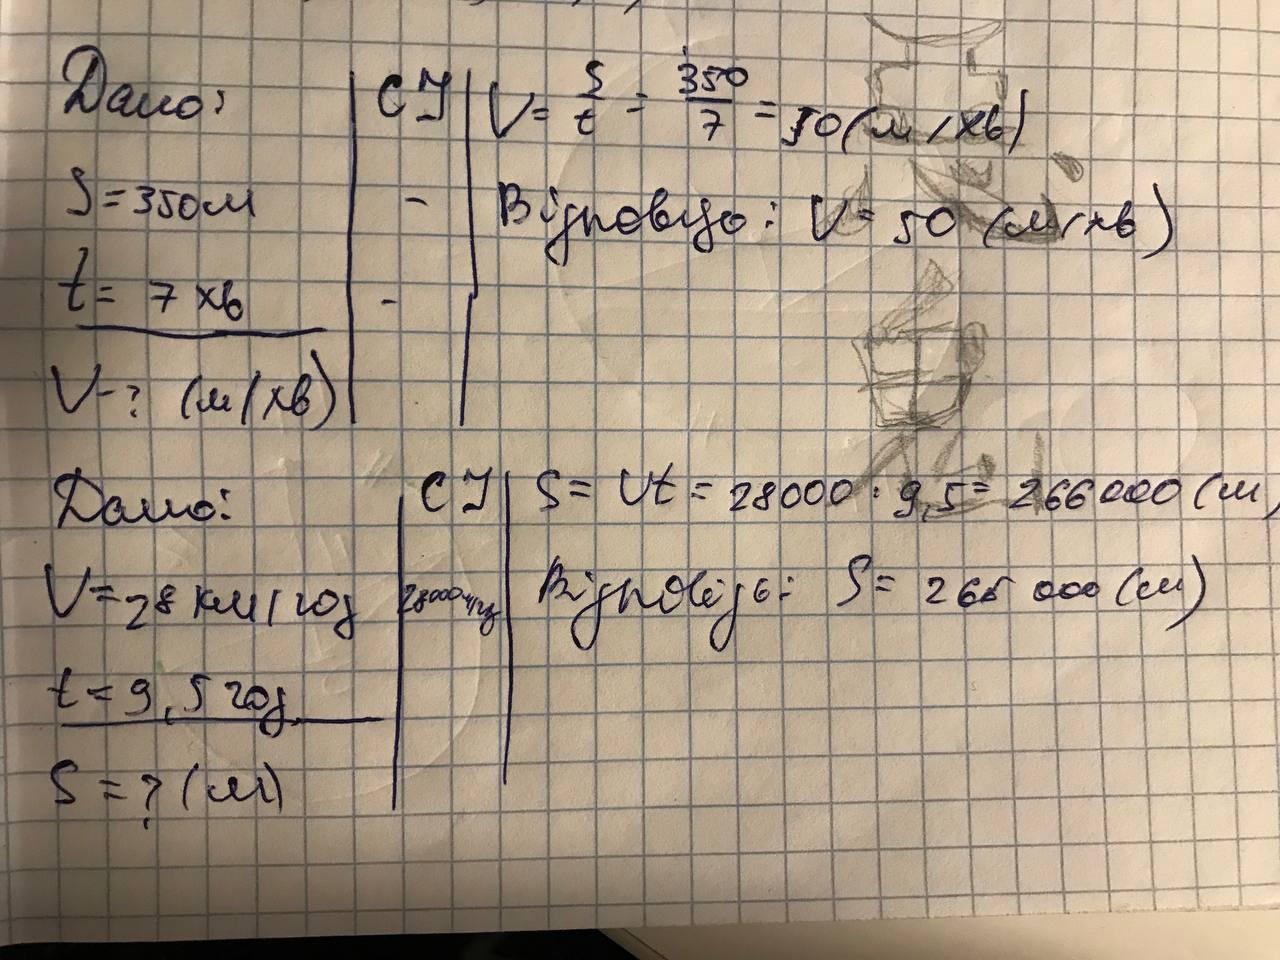 Дано:
СІ
V = S/t = 350/7 = 50 (м/хв)
S = 350м
-
Відповідь: V = 50 (м/хв)
t = 7 хв
-
V - ? (м/хв)
Дано:
СІ
S = Vt = 28000 · 9,5 = 266000 (м)
V = 28 км/год
28000 м/год
Відповідь: S = 266 000 (м)
t = 9,5 год
S = ? (м)